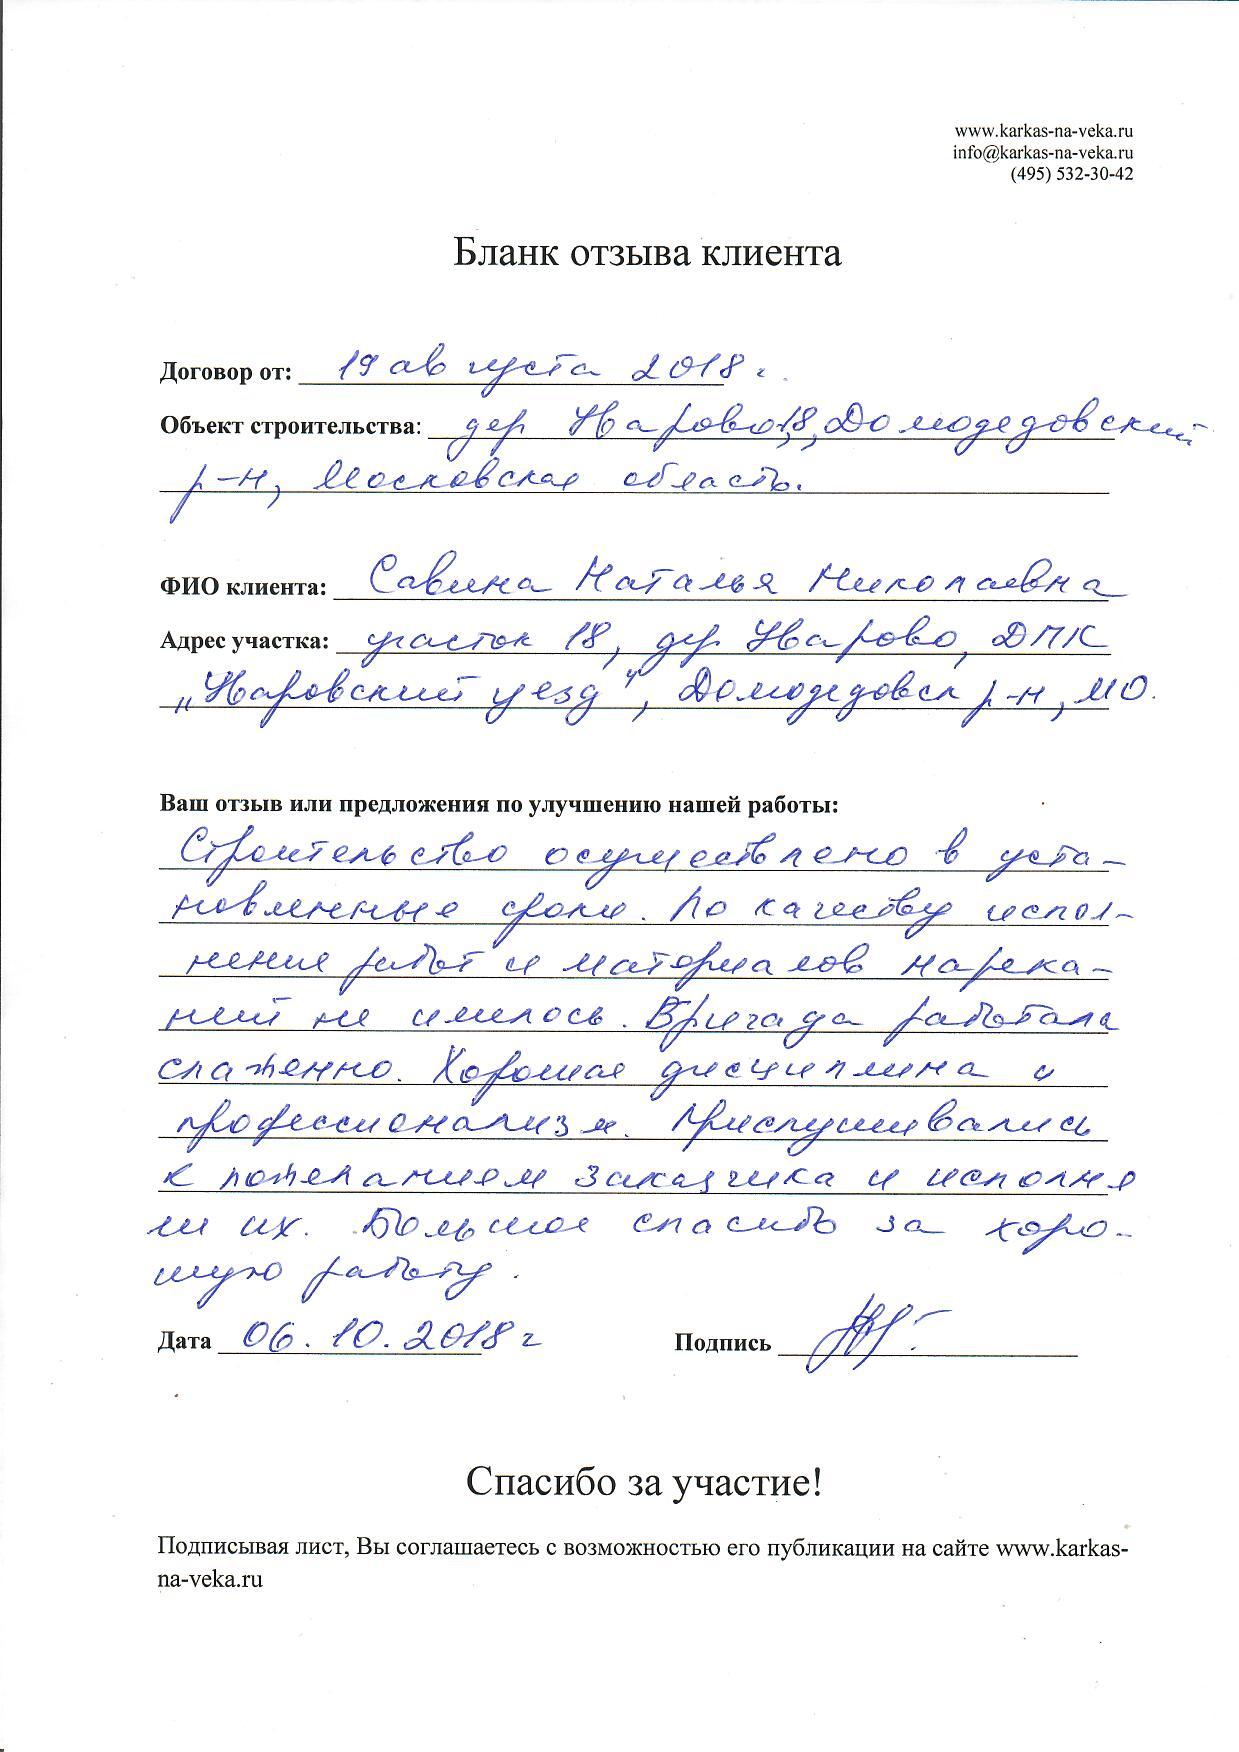 www.karkas-na-veka.ru
info@karkas-na-veka.ru
(495) 532-30-42
Бланк отзыва клиента
Договор от: 19 августа 2018 г.
Объект строительства: дер Уварово, 18, Домодедовский
р-н, Московская область.
ФИО клиента: Савина Наталья Николаевна
Адрес участка: участок 18, дер Уварово, ДПК
„Уваровский уезд", Домодедовск р-н, МО.
Ваш отзыв или предложения по улучшению нашей работы:
Строительство осуществлено в уста-
новленные сроки. По качеству испол-
нения работ и материалов нарека-
ний не имелось. Бригада работала
слаженно. Хорошая дисциплина и
профессионализм. Прислушивались
к пожеланием заказчика и исполня
ли их. Большое спасибо за хоро-
шую работу.
Дата 06.10.2018 г
Подпись
Спасибо за участие!
Подписывая лист, Вы соглашаетесь с возможностью его публикации на сайте www.karkas-
na-veka.ru